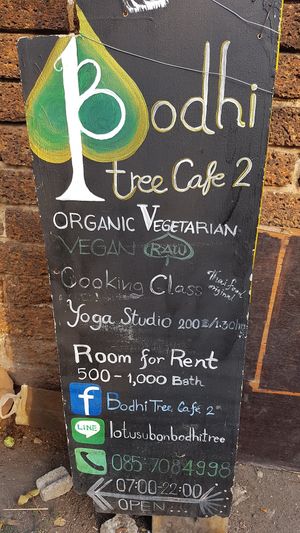 Bodhi
tree Cafe 2
ORGANIC VEGETARIAN
VEGAN RAW
Cooking Class Thai food original
Yoga Studio 200฿/1.30hr
Room for Rent
500-1,000 Bath
f Bodhi Tree Cafe 2
LINE lotusubonbodhitree
085-7084998
07:00-22:00
OPEN